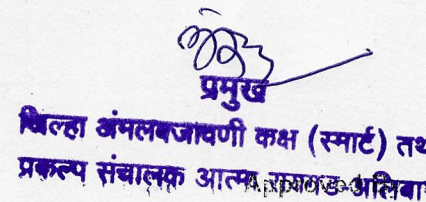 प्रमुख
जिल्हा अंमलबजावणी कक्ष (स्मार्ट) तथ
प्रकल्प संचालक आत्मा रायगड-अलिबा